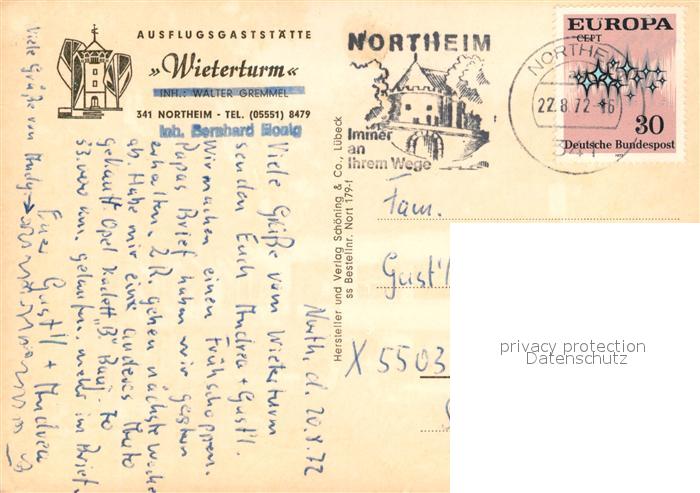 AUSFLUGSGASTSTÄTTE
»Wieterturm«
INH.: WALTER GREMMEL
341 NORTHEIM - TEL. (05551) 8479
Inh. Bernhard Honig
North, d. 20.8.72
Viele Grüße vom Wieterturm
senden Euch Andrea + Gust'l.
Wir machen einen Frühschoppen.
Papas Brief haben wir gestern
erhalten. Z.R. gehen nächste Woche
ab. Habe mir eine anderes Auto
gekauft. Opel Kadett „B" Bauj. 70
53.000 km gelaufen. mehr im Brief.
Euer Gust'l + Andrea
Viele Grüße von Andy
Hersteller und Verlag Schöning & Co., Lübeck
ss Bestellnr. Nort 179-f
NORTHEIM
Immer
an
Ihrem Wege
NORTHEIM
22.8.72-16
341
EUROPA
CEPT
30
Deutsche Bundespost
1972
Fam.
Gust'l
X 5503
privacy protection
Datenschutz